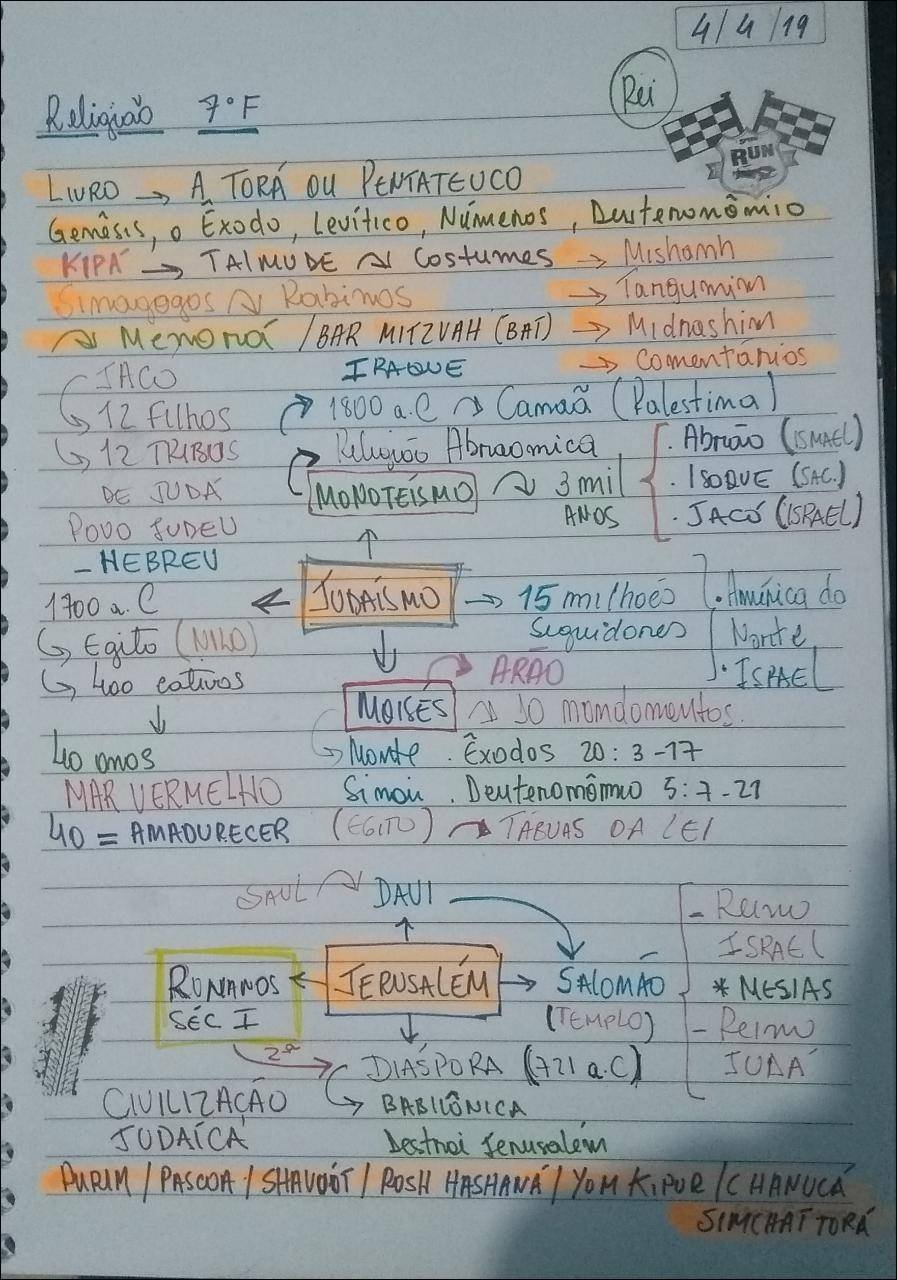 4/4/19
Rei
Religião 7º F
RUN
LIVRO → A TORÁ OU PENTATEUCO
Genêsis, o Êxodo, Levítico, Números, Deuteronômio
KIPÁ → TALMUDE ↝ Costumes → Mishanh
Sinagogos ↝ Rabinos → Tangumim
↝ Menorá / BAR MITZVAH (BAT) → Midrashim
→ Comentários
JACÓ
↳ 12 Filhos
↳ 12 TRIBOS
DE JUDÁ
POVO JUDEU
- HEBREU
IRAQUE
1800 a.C ↝ Canaã (Palestina)
Religião Abraomica
MONOTEÍSMO ↝ 3 mil
ANOS
. Abraão (ISMAEL)
. ISAQUE (SAC.)
. JACÓ (ISRAEL)
JUDAÍSMO → 15 milhoés
Seguidores
. América do
Norte
. ISRAEL
1700 a.C
↳ Egito (NILO)
↳ 400 cativos
↓
40 anos
MAR VERMELHO
40 = AMADURECER
ARÃO
MOISÉS ↝ 10 mandamentos.
Monte . Êxodos 20:3-17
Sinai . Deuteronômio 5:7-21
(EGITO) ↝ TÁBUAS DA LEI
SAUL ↝ DAVI
ROMANOS ← JERUSALÉM → SALOMÃO
SÉC I
(TEMPLO)
- Reino
ISRAEL
* MESIAS
- Reino
JUDÁ
2ª
DIÁSPORA (721 a.C)
↳ BABILÔNICA
Destroi Jerusalém
CIVILIZAÇÃO
JUDAÍCA
PURIM / PASCOA / SHAVUÓT / ROSH HASHANÁ / YOM KIPUR / CHANUCÁ
SIMCHAT TORÁ